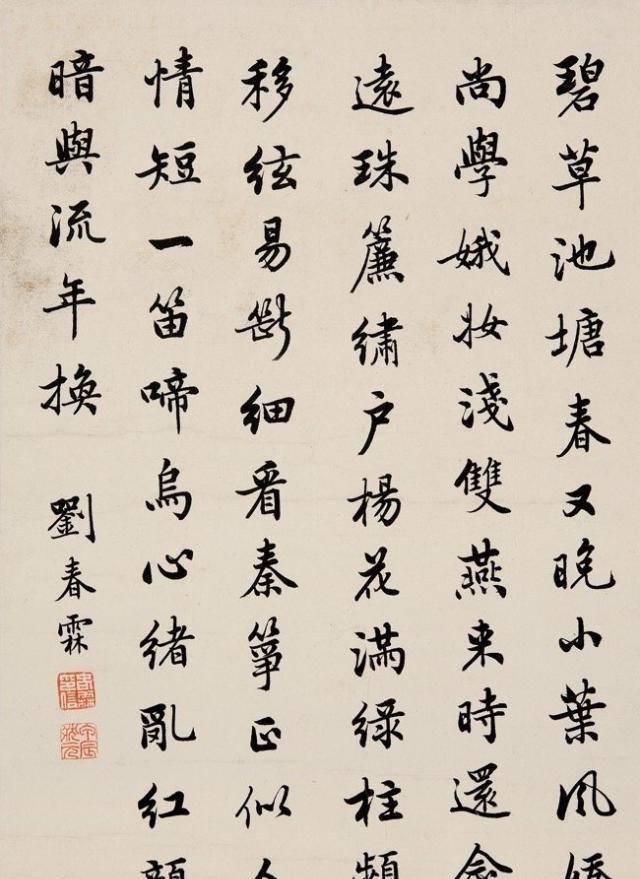 碧草池塘春又晚小葉風嬌
尚學娥妝淺雙燕来時還念
遠珠簾繡户楊花滿緑柱頻
移絃易斷細看秦箏正似人
情短一笛啼烏心緒亂紅顏
暗與流年換
劉春霖